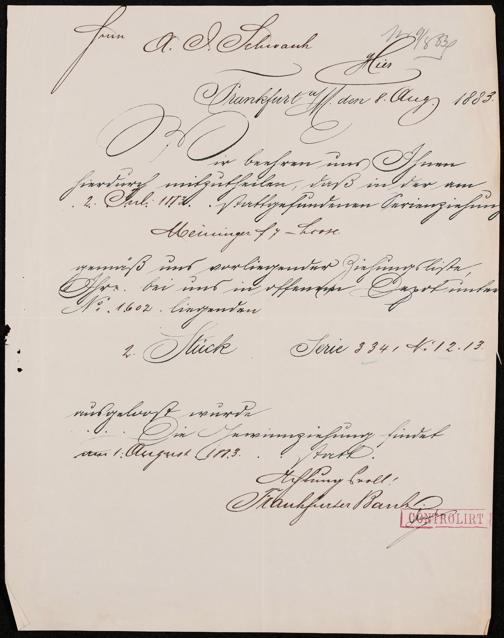 Herrn A. J. Schwank
9/8 83
Hier
Frankfurt a/M. den 8. Aug 1883.
Wir beehren uns Ihnen
hierdurch mitzutheilen, daß in der am
2. Juli stattgefundenen Serienziehung
Meininger f 7 - Loose
gemäß uns vorliegender Ziehungsliste,
Ihre bei uns in offenem Depot unter
No. 1602. liegenden
2. Stück Serie 3341 N. 12. 13
ausgeloost wurde
Die Gewinnziehung findet
am 1. August statt.
Achtungsvoll!
Frankfurter Bank
CONTROLIRT